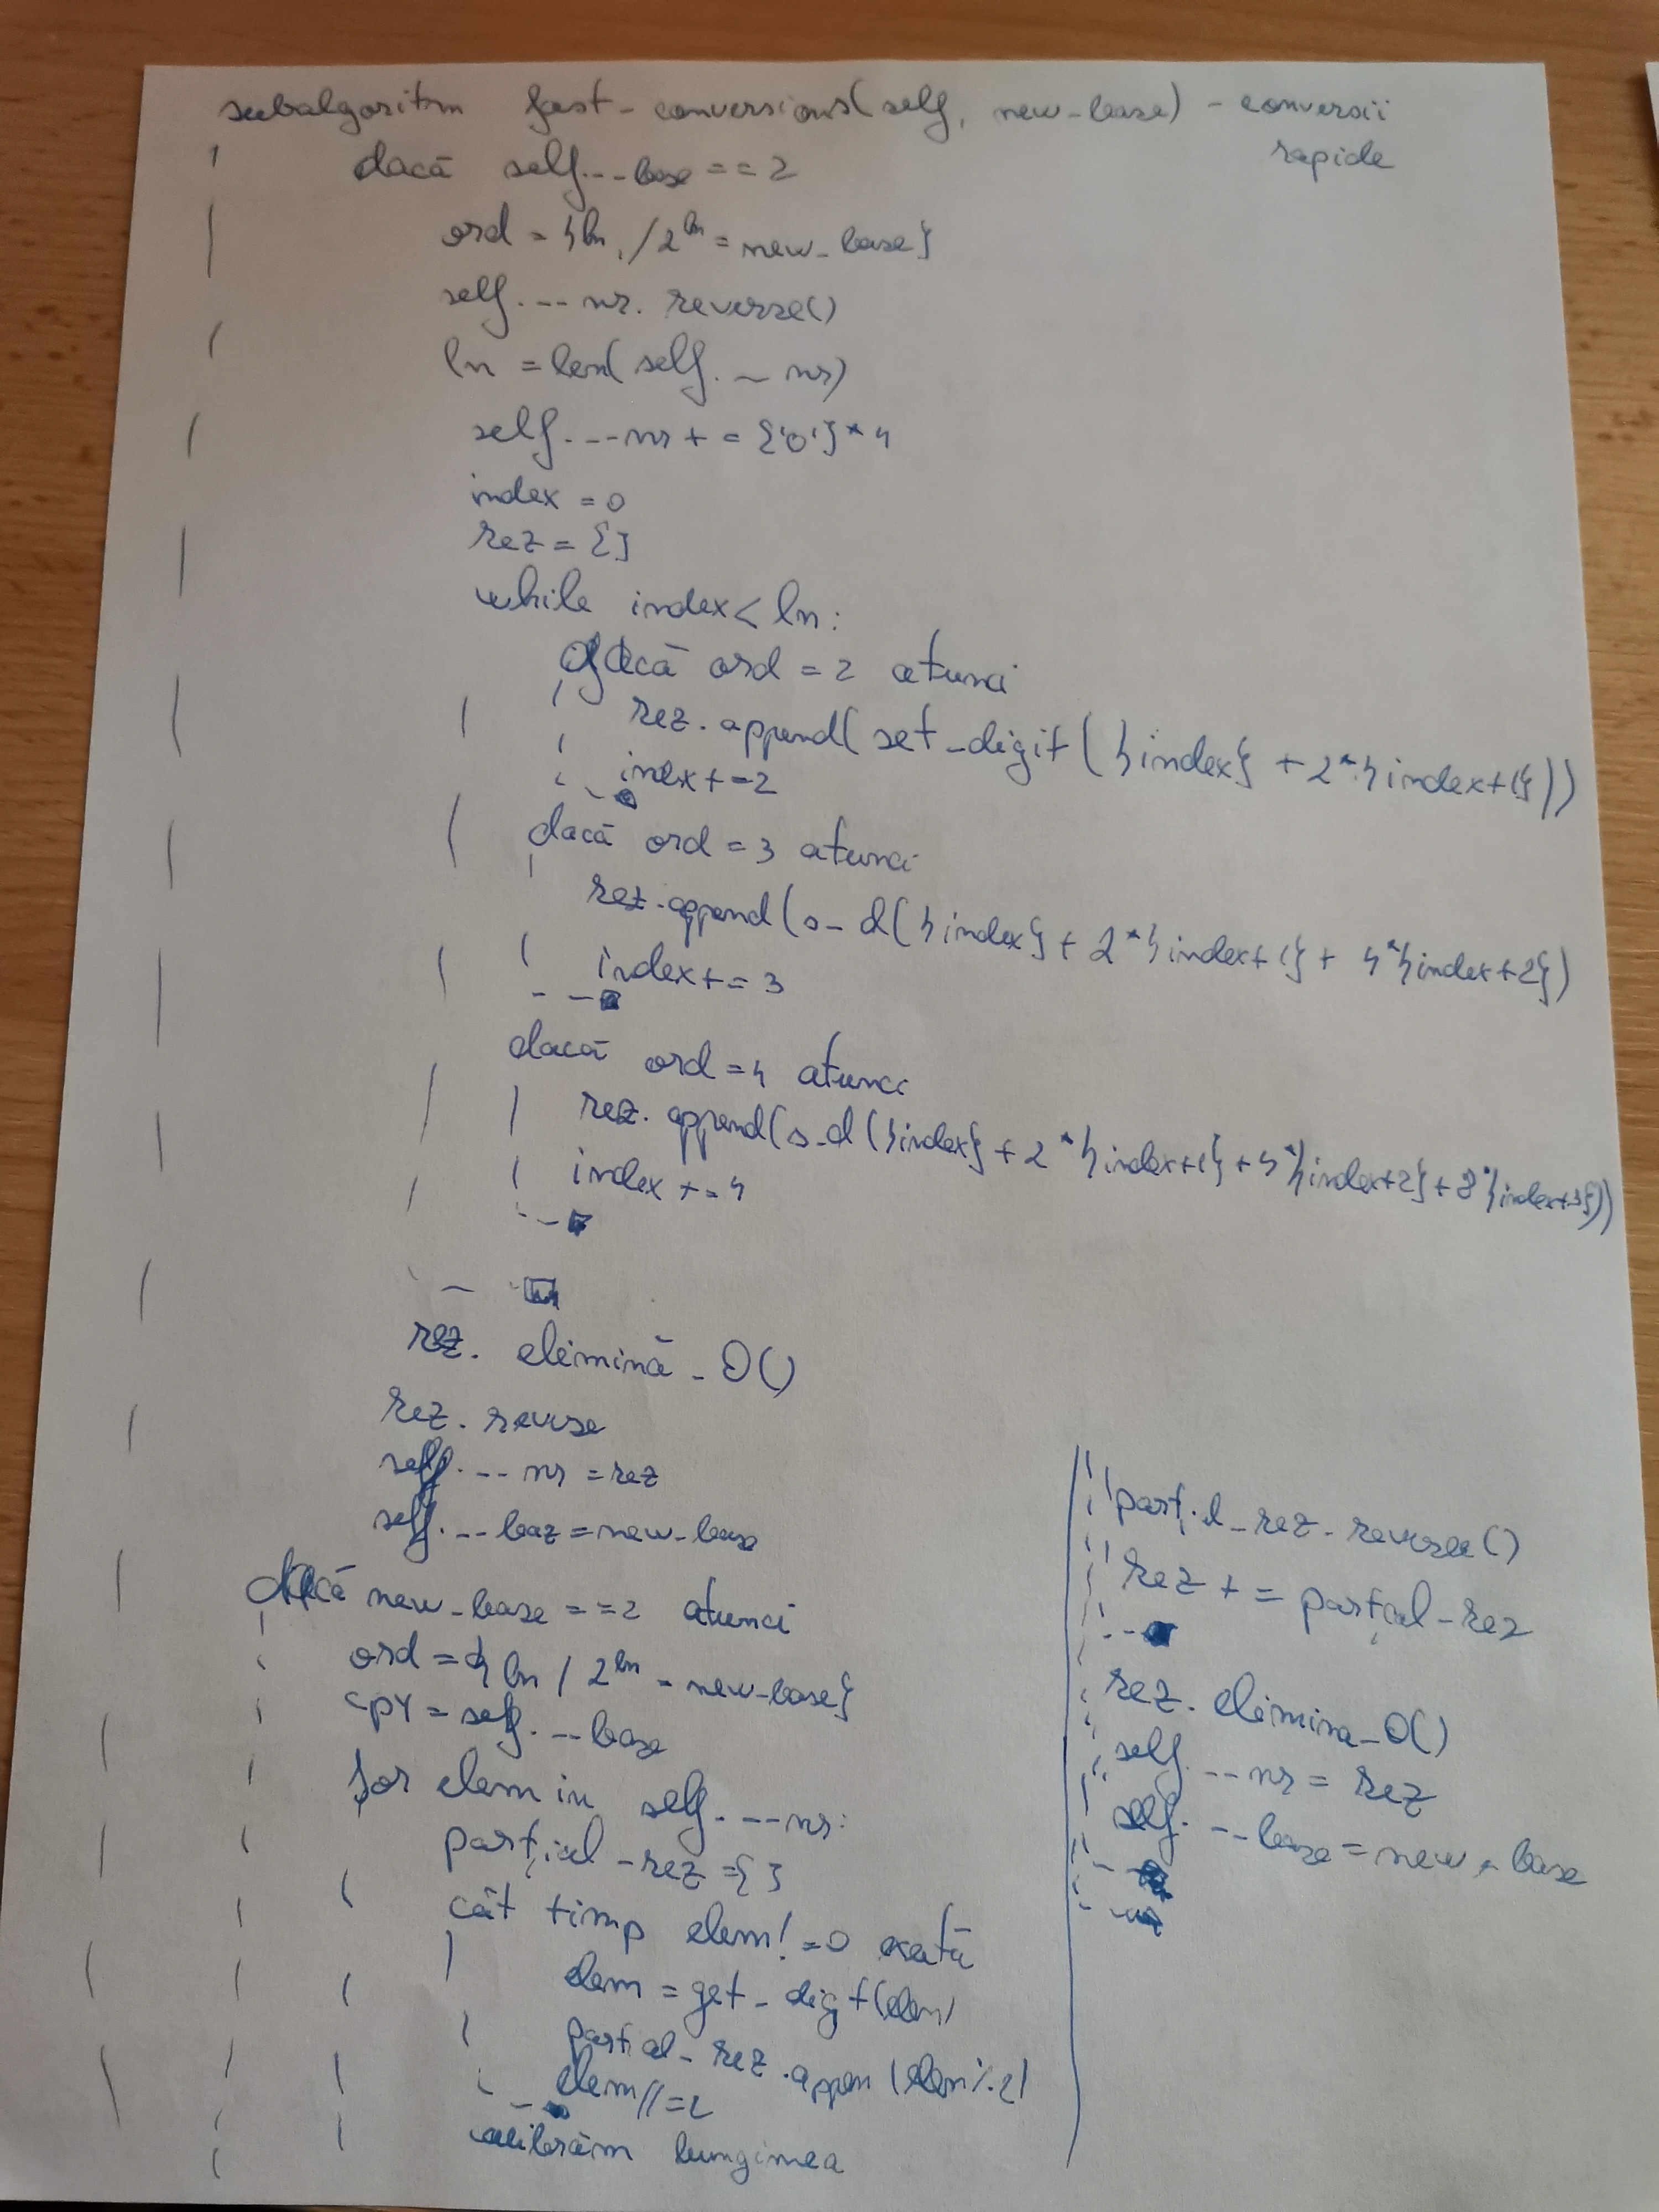 subalgoritm fast-conversions(self, new-base) - conversii
rapide
dacă self.__base == 2
ord = {ln, / 2^ln = new_base}
self.__nr.reverse()
ln = len(self.__nr)
self.__nr += {'0'} * 4
index = 0
rez = {}
while index < ln:
dacă ord = 2 atunci
rez.append(set_digit({index} + 2*{index+1}))
index += 2
dacă ord = 3 atunci
rez.append(s_d({index} + 2*{index+1} + 4*{index+2})
index += 3
dacă ord = 4 atunci
rez.append(s_d({index} + 2*{index+1} + 4*{index+2} + 8*{index+3}))
index += 4
rez. elimină_0()
rez. reverse
self.__nr = rez
self.__baz = new_base
dacă new_base == 2 atunci
ord = {ln / 2^ln = new_base}
cpy = self.__base
for elem in self.__nr:
parțial_rez = {}
cât timp elem != 0 exetă
elem = get_digit(elem)
parțial_rez.appen(elem%2)
elem //= 2
lungimea
parțial_rez.reverse()
rez += parțial_rez
rez. elimina_0()
self.__nr = rez
self.__base = new_base